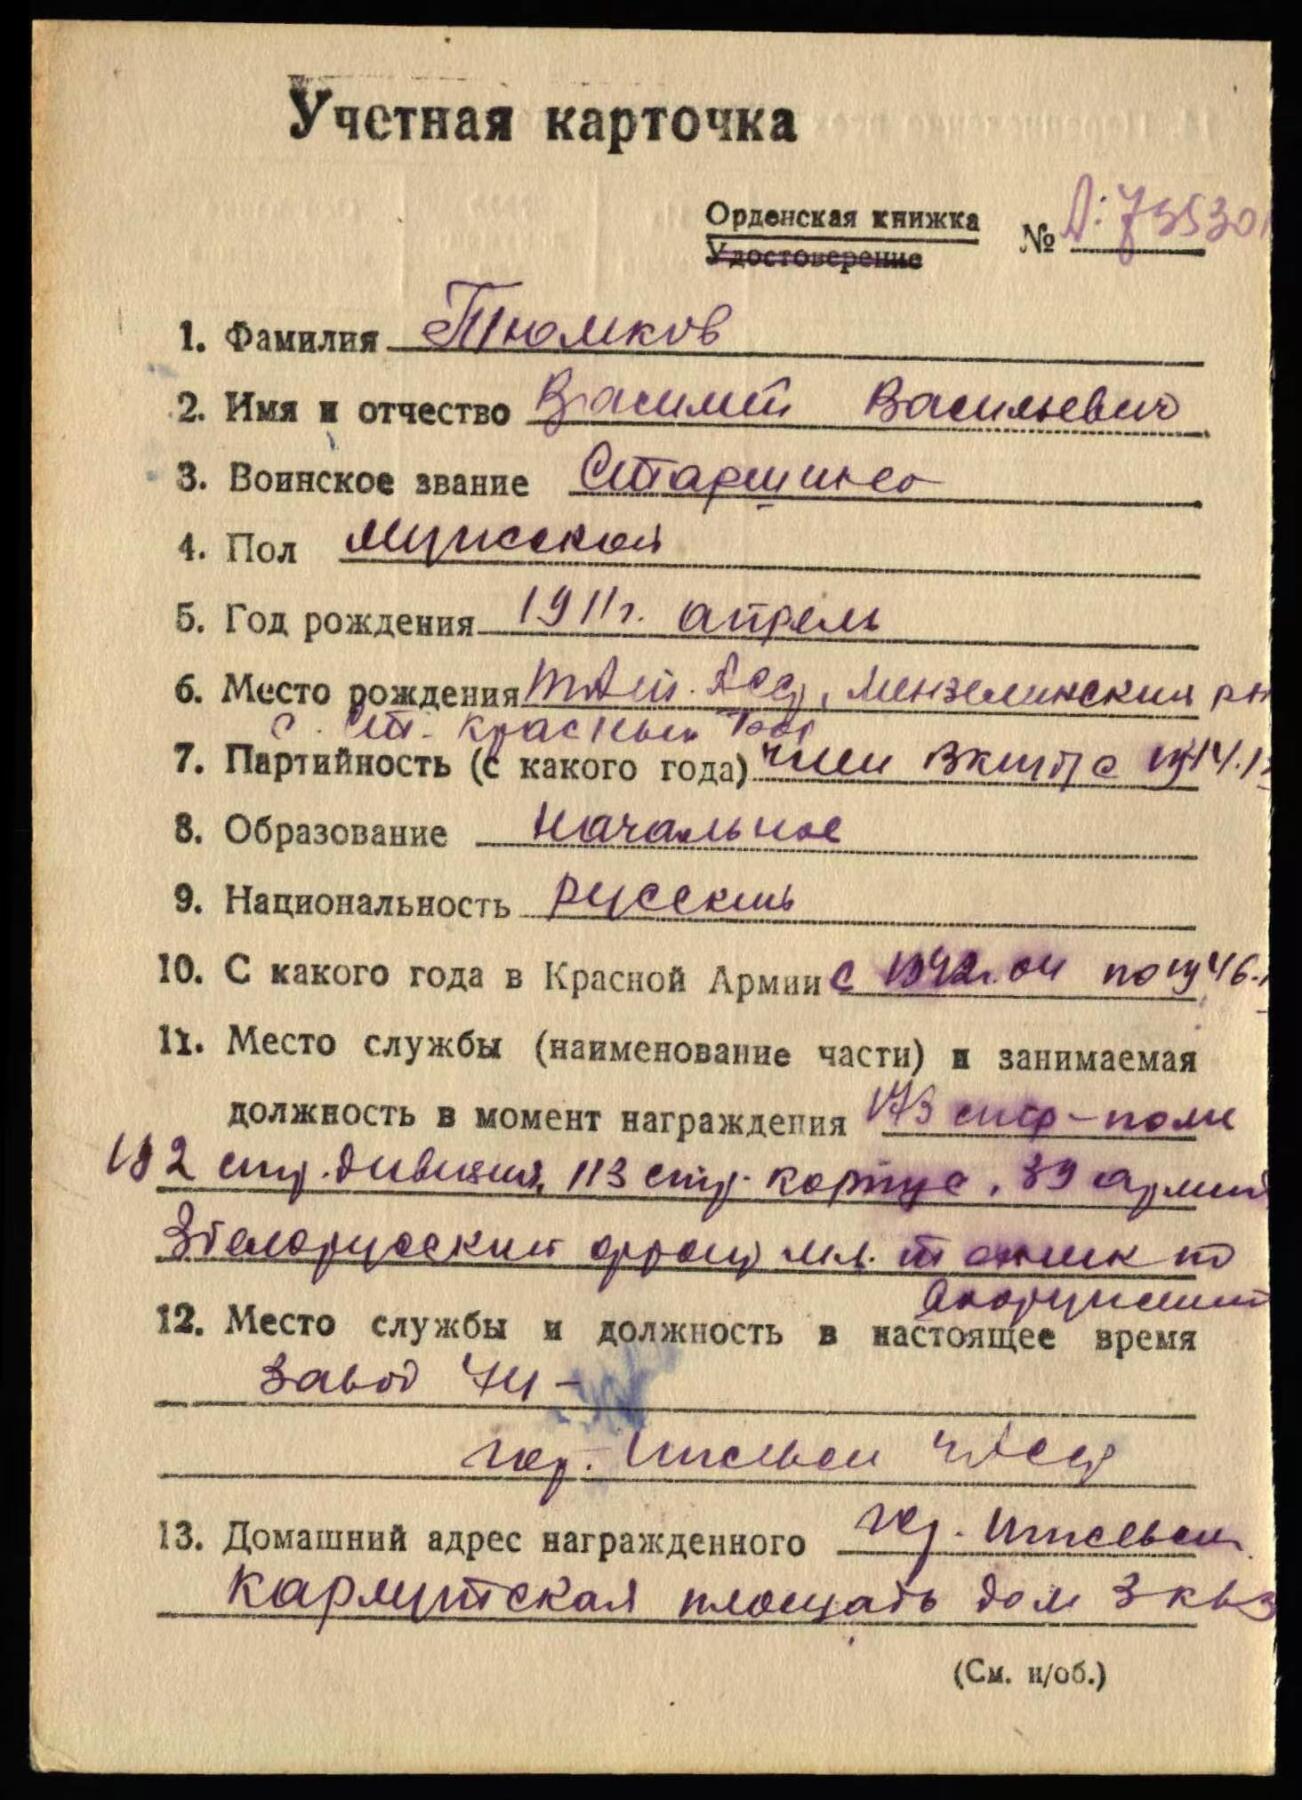 Учетная карточка
Орденская книжка
Удостоверение
№ Д: 735301
1. Фамилия Тюмков
2. Имя и отчество Василий Васильевич
3. Воинское звание Старшина
4. Пол Мужской
5. Год рождения 1911г. апрель
6. Место рождения Тат. АССР, Мензелинский рн
с. Ст. Красный Бор
7. Партийность (с какого года) член ВКП/б с
8. Образование Начальное
9. Национальность русский
10. С какого года в Красной Армии с 1942г. по 1946
11. Место службы (наименование части) и занимаемая
должность в момент награждения 173 стр-полк
192 стр. дивизия, 113 стр. корпус, 39 армии
3 белорусский фронт мл. техник по
вооружению
12. Место службы и должность в настоящее время
Завод 74 -
гор. Ижевск УАССР
13. Домашний адрес награжденного гор. Ижевск
Карлутская площадь дом 3 кв 3
(См. н/об.)